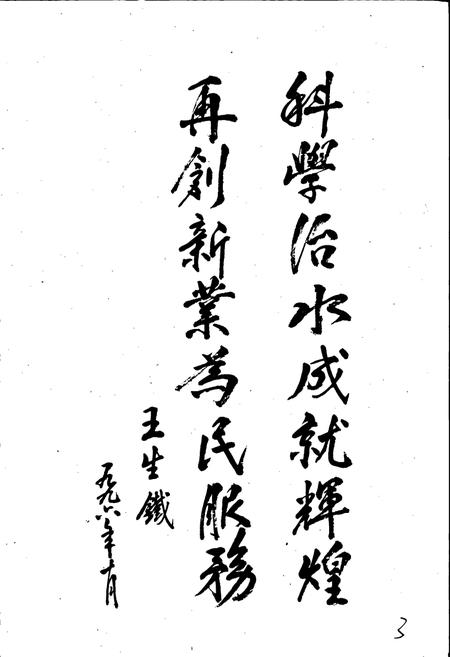 科學治水成就輝煌
再創新業為民服務
王生鐵
一九九六年十月
3